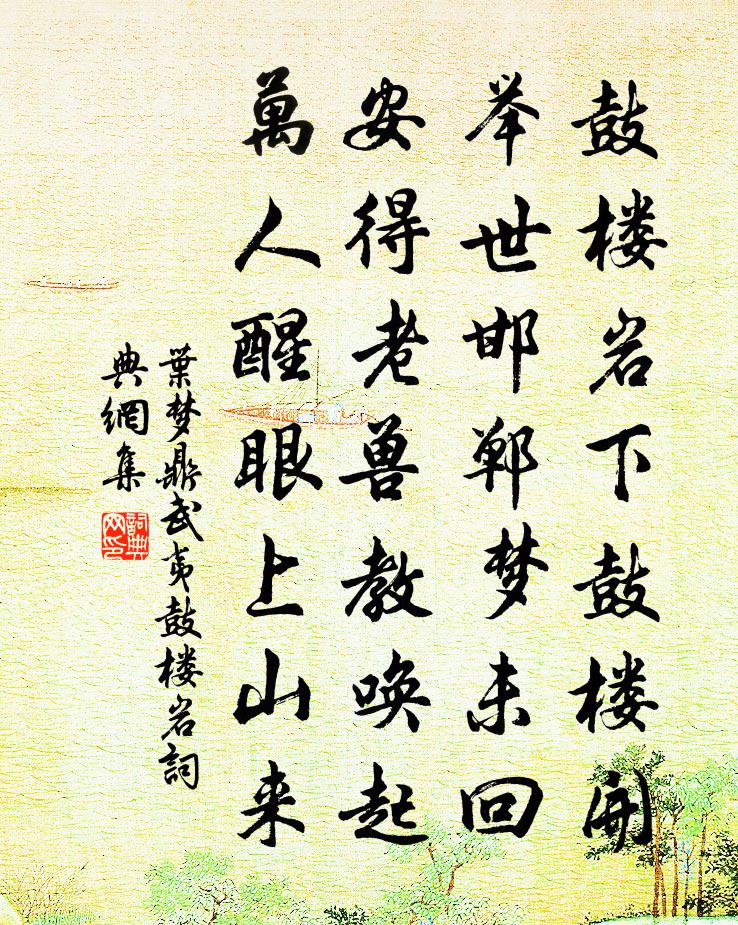 鼓楼岩下鼓楼開
举世邯郸梦未回
安得老兽教唤起
萬人醒眼上山来
葉梦鼎武夷鼓楼岩詞
典網集
詞典
网印